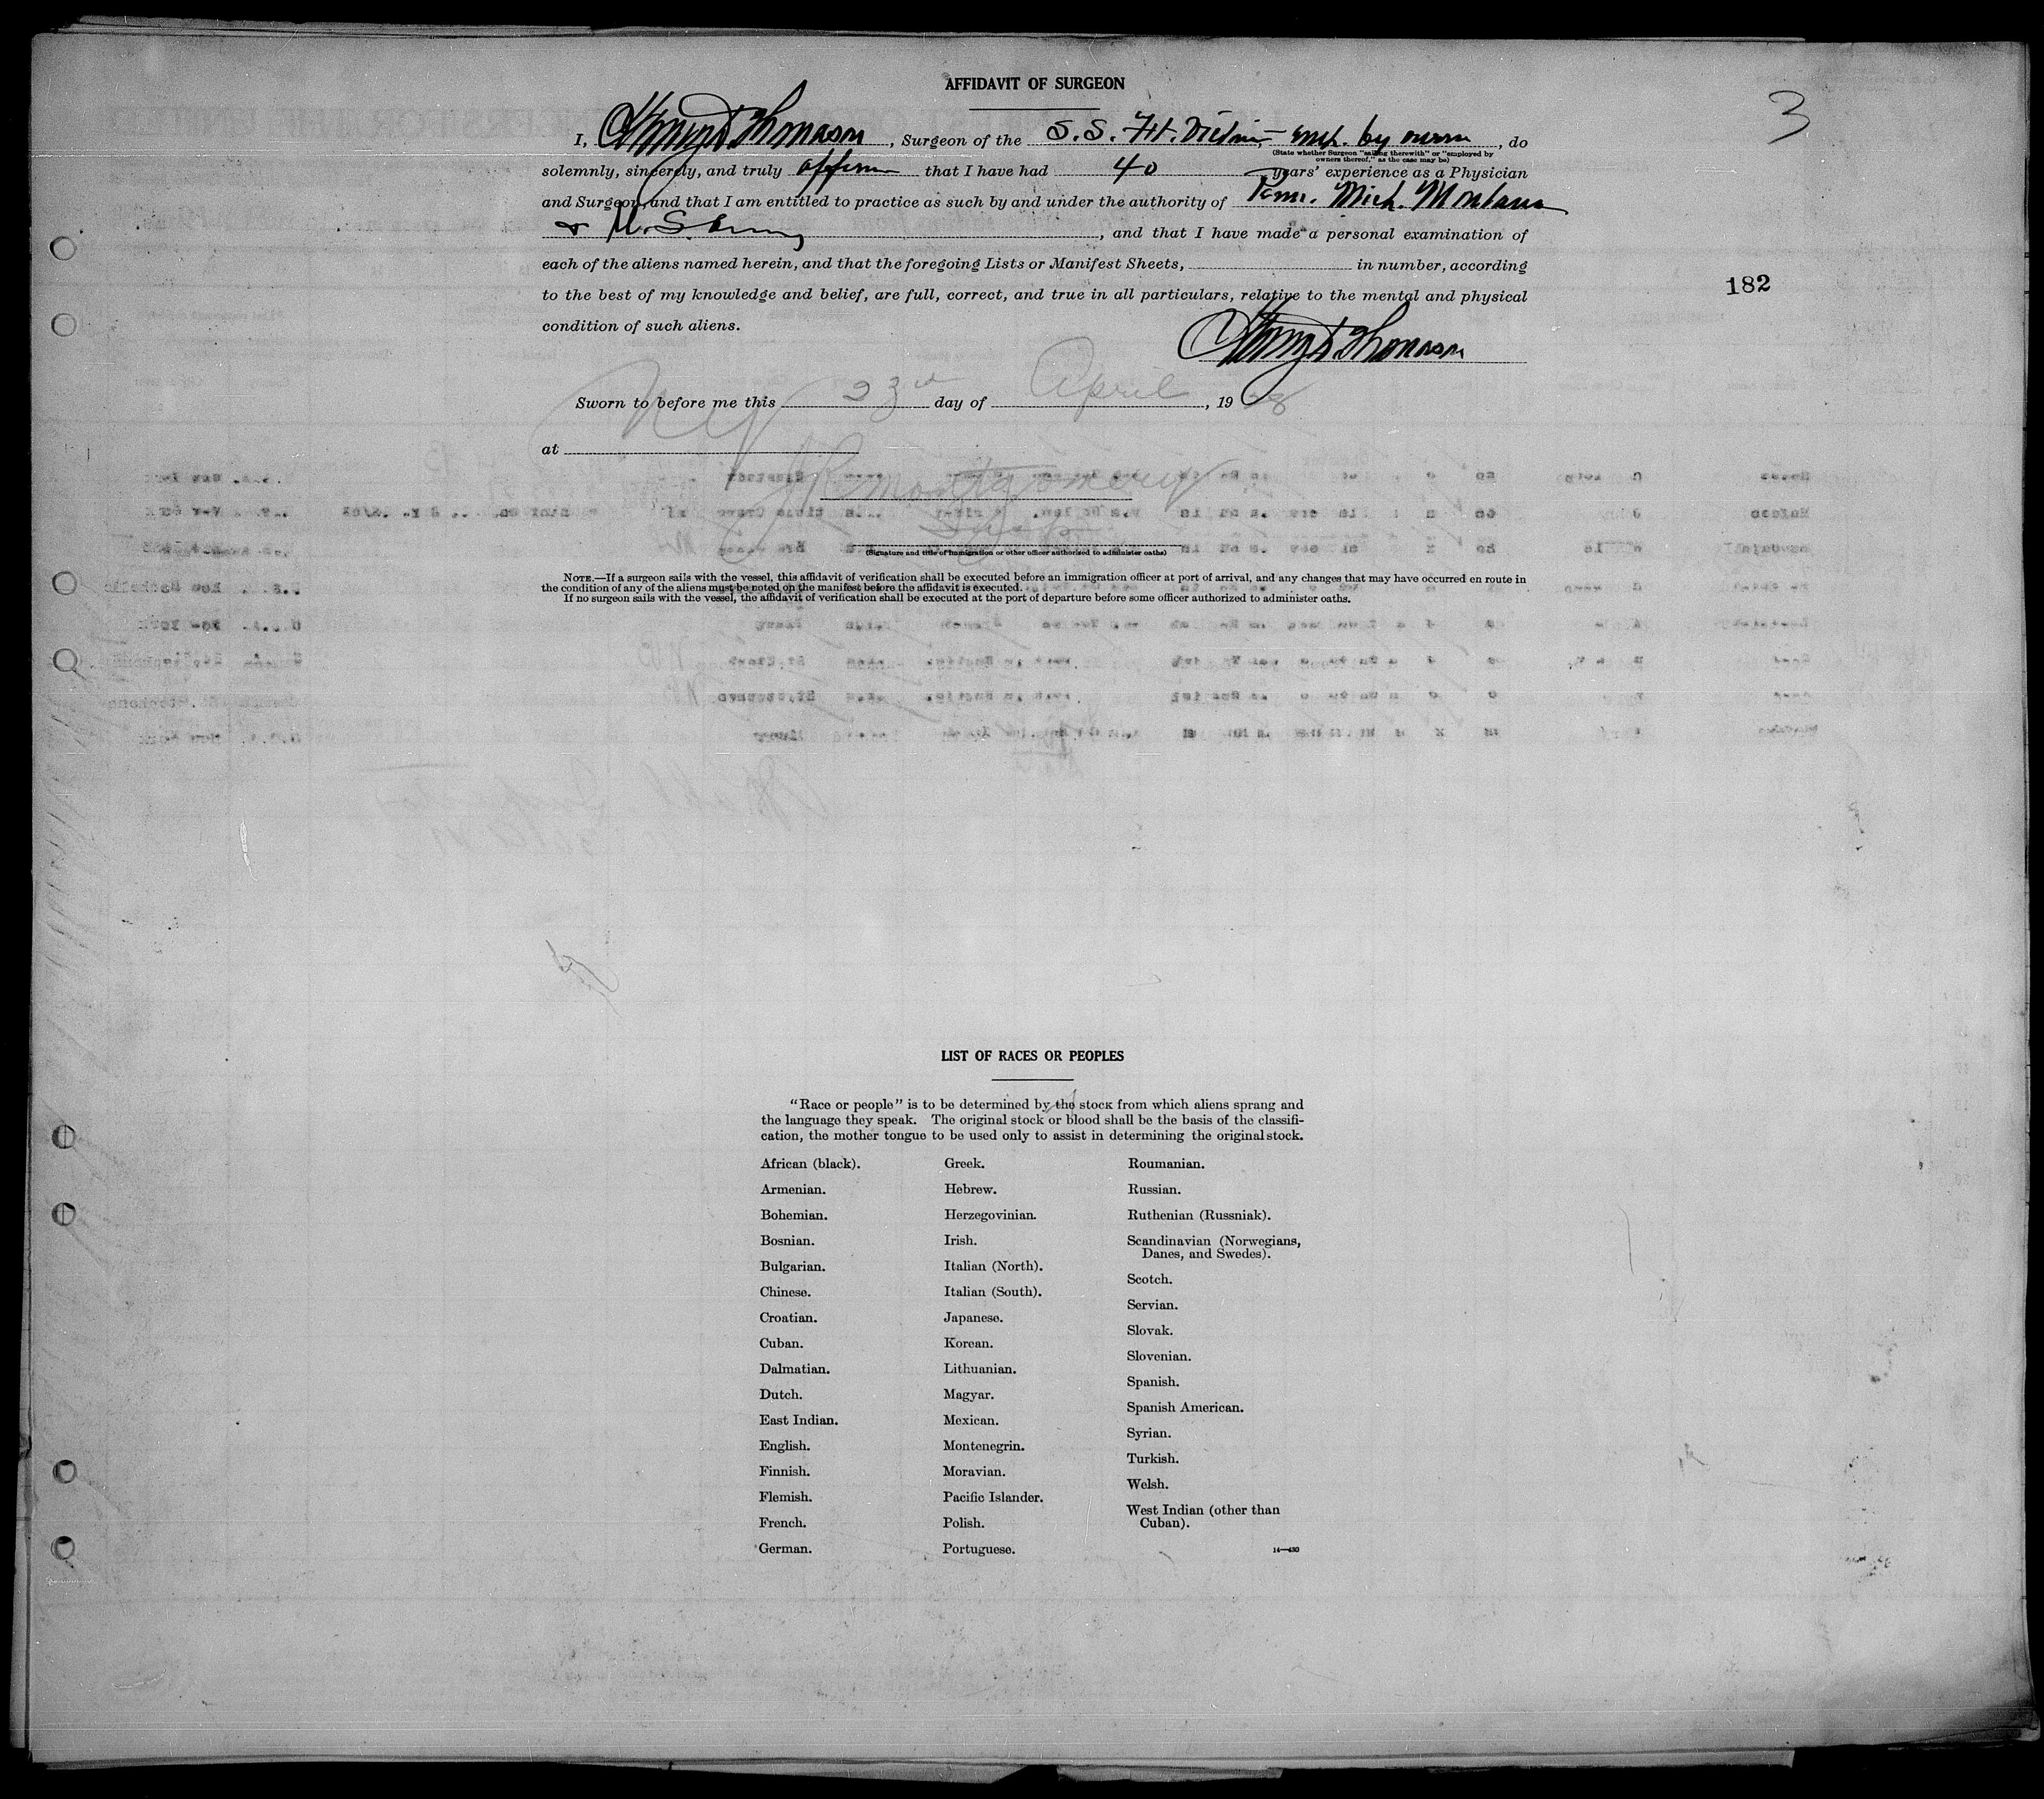 AFFIDAVIT OF SURGEON
3
I, Thomason, Surgeon of the S.S. Ft. emp. by owner, do
(State whether Surgeon "sailing therewith" or "employed by
owners thereof," as the case may be)
solemnly, sincerely, and truly affirm that I have had 40 years' experience as a Physician
and Surgeon, and that I am entitled to practice as such by and under the authority of Mich. Montana
, and that I have made a personal examination of
each of the aliens named herein, and that the foregoing Lists or Manifest Sheets, in number, according
182
to the best of my knowledge and belief, are full, correct, and true in all particulars, relative to the mental and physical
condition of such aliens.
Thomason
Sworn to before me this 23rd day of April, 1928
at NY
Montgomery
Insp
(Signature and title of immigration or other officer authorized to administer oaths)
NOTE.—If a surgeon sails with the vessel, this affidavit of verification shall be executed before an immigration officer at port of arrival, and any changes that may have occurred en route in
the condition of any of the aliens must be noted on the manifest before the affidavit is executed.
If no surgeon sails with the vessel, the affidavit of verification shall be executed at the port of departure before some officer authorized to administer oaths.
LIST OF RACES OR PEOPLES
"Race or people" is to be determined by the stock from which aliens sprang and
the language they speak. The original stock or blood shall be the basis of the classifi-
cation, the mother tongue to be used only to assist in determining the original stock.
African (black).
Armenian.
Bohemian.
Bosnian.
Bulgarian.
Chinese.
Croatian.
Cuban.
Dalmatian.
Dutch.
East Indian.
English.
Finnish.
Flemish.
French.
German.
Greek.
Hebrew.
Herzegovinian.
Irish.
Italian (North).
Italian (South).
Japanese.
Korean.
Lithuanian.
Magyar.
Mexican.
Montenegrin.
Moravian.
Pacific Islander.
Polish.
Portuguese.
Roumanian.
Russian.
Ruthenian (Russniak).
Scandinavian (Norwegians,
Danes, and Swedes).
Scotch.
Servian.
Slovak.
Slovenian.
Spanish.
Spanish American.
Syrian.
Turkish.
Welsh.
West Indian (other than
Cuban).
14—430